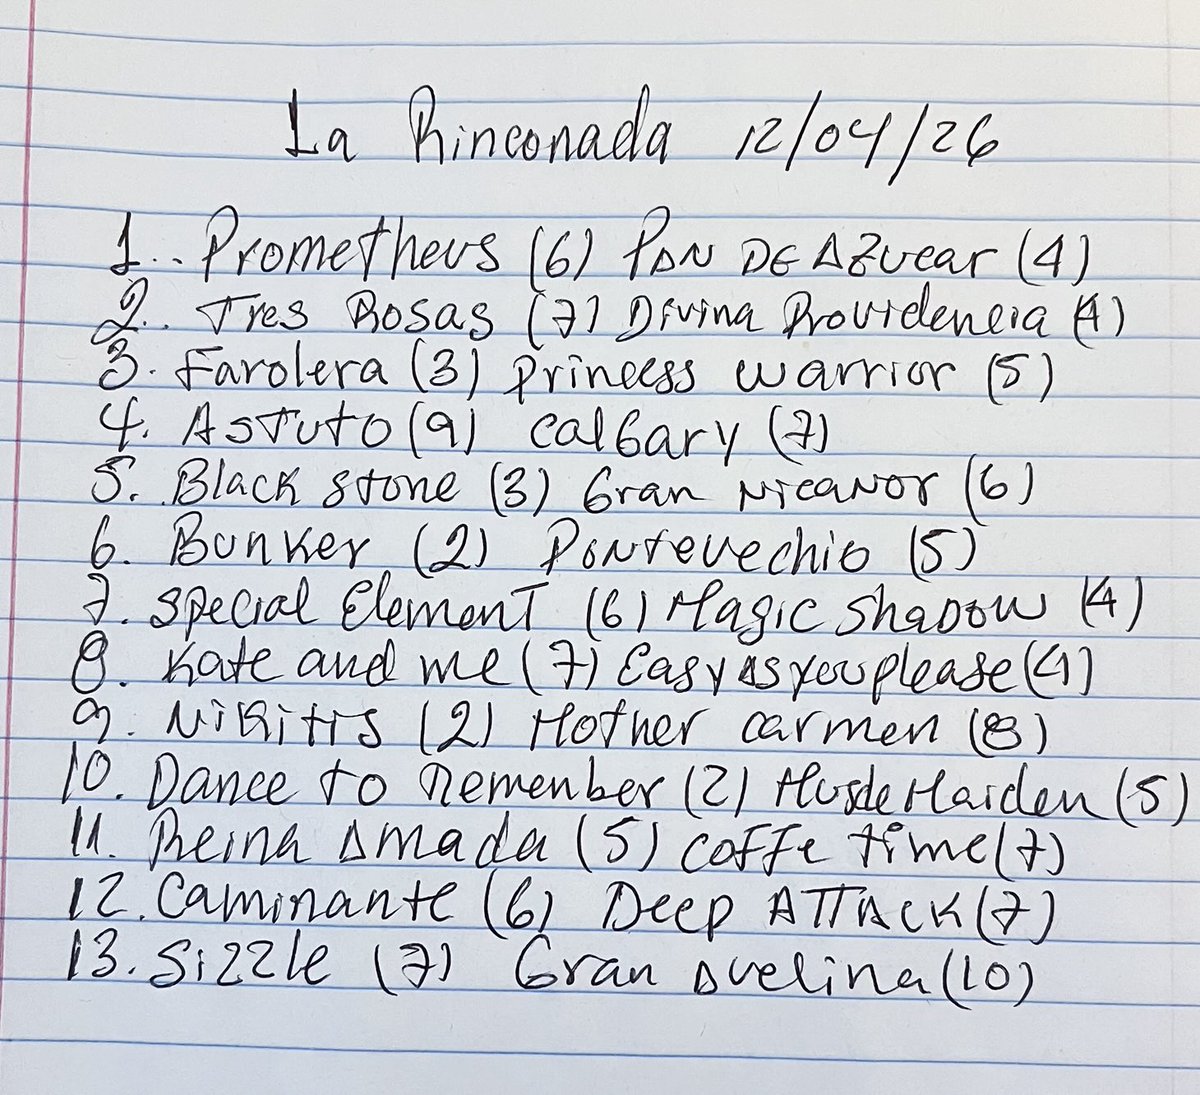 La Rinconada 12/04/26
1.. Prometheus (6) PAN DE AZucar (4)
2.. Tres Rosas (7) Divina Providencia (4)
3. Farolera (3) princess warrior (5)
4. Astuto (9) calGary (7)
5. Black stone (3) Gran Nicanor (6)
6. Bunker (2) Pontevechio (5)
7. special Element (6) Magic Shadow (4)
8. Kate and me (7) Easy As you please (4)
9. Nikitis (2) Mother carmen (8)
10. Dance to Remenber (2) Maiden (5)
11. Reina Amada (5) coffe time (7)
12. Caminante (6) Deep ATTACK (7)
13. Sizzle (7) Gran Avelina (10)